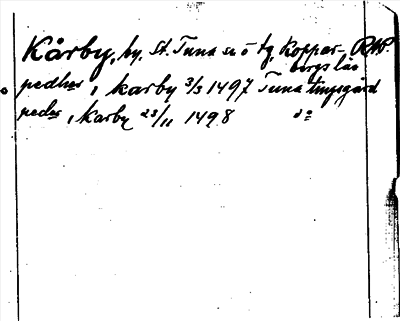 Kårby, by, St. Tuna sn o tg, Koppar-
bergs län
pedher i karby 3/3 1497 Tuna tingsgård
peder i karby 23/11 1498 do